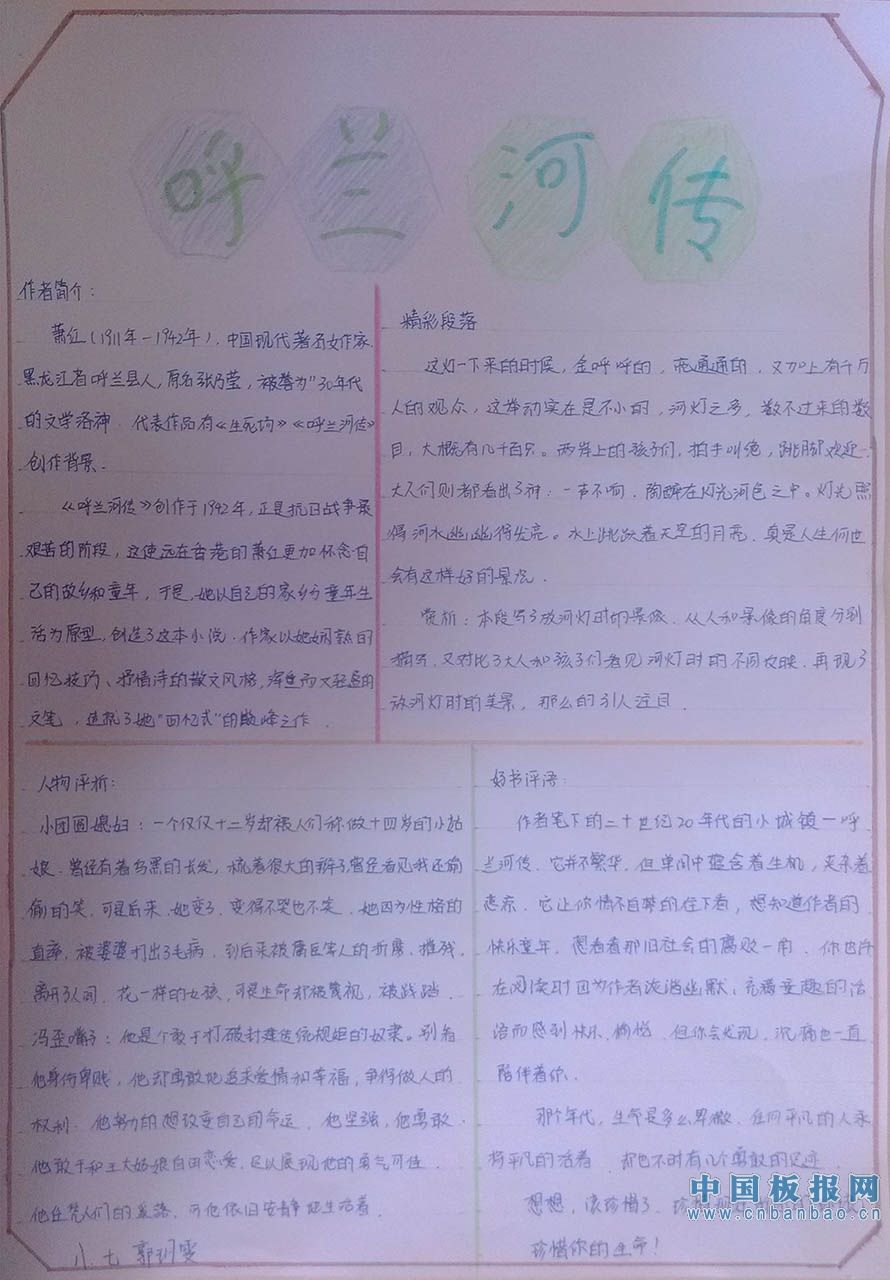 呼兰河传
作者简介:
萧红(1911年-1942年),中国现代著名女作家.
黑龙江省呼兰县人,原名张乃莹,被誉为"30年代
的文学洛神.代表作品有《生死场》《呼兰河传》
创作背景.
《呼兰河传》创作于1942年,正是抗日战争最
艰苦的阶段,这使远在香港的萧红更加怀念自
己的故乡和童年,于是,她以自己的家乡与童年生
活为原型,创造了这本小说.作家以她娴熟的
回忆技巧、抒情诗的散文风格,浑重而又轻盈的
文笔,造就了她"回忆式"的巅峰之作.
精彩段落
这灯一下来的时候,金呼呼的,亮通通的,又加上有千万
人的观众,这举动实在是不小的,河灯之多,数不过来的数
目,大概有几千百只。两岸上的孩子们,拍手叫绝,跳脚欢迎.
大人们则都看出了神:一声不响,陶醉在灯光河色之中。灯光照
得河水幽幽得发亮。水上跳跃着天空的月亮.真是人生何世
会有这样好的景况.
赏析:本段写了放河灯时的景像.从人和景像的角度分别
描写,又对比了大人和孩子们看见河灯时的不同反映.再现了
放河灯时的美景,那么的引人注目.
人物评析:
小团圆媳妇:一个仅仅十二岁却被人们称做十四岁的小姑
娘.曾经有着乌黑的长发,梳着很大的辫子,曾经看见我还偷
偷的笑.可是后来.她变了.变得不哭也不笑.她因为性格的
直率,被婆婆打出了毛病,到后来被庸医害人的折磨、摧残,
离开了人间.花一样的女孩,可是生命却被蔑视,被践踏.
冯歪嘴子:他是个敢于打破封建传统规矩的奴隶。别看
他身份卑贱,他却勇敢地追求爱情和幸福,争得做人的
权利.他努力的想改变自己的命运.他坚强,他勇敢.
他敢于和王大姑娘自由恋爱.足以展现他的勇气可佳.
他任凭人们的 可他依旧安静地生活着.
八.七 郭玥雯
好书评语:
作者笔下的二十世纪20年代的小城镇一呼
兰河传.它并不繁华.但单调中蕴含着生机,夹杂着
悲凉.它让你情不自禁的往下看,想知道作者的
快乐童年,想看看那旧社会的腐败一角.你也许
在阅读时因为作者诙谐幽默、充满童趣的话
语而感到快乐、愉悦.但你会发现.沉痛也一直
陪伴着你.
那个年代,生命是多么卑微.任何平凡的人永
将平凡的活着.却也不时有几个勇敢的足迹.
想想,该珍惜了.珍惜
珍惜你的生命!
中国板报网
www.cnbanbao.cn